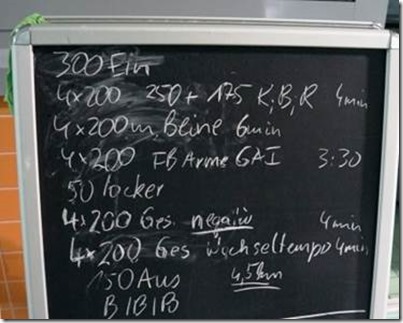 300 Ein
4x200 250 + 175 K, B, R 4min
4x200m Beine 6min
4x200 FB Arme GAI 3:30
50 locker
4x200 Ges negativ 4min
4x200 Ges Wechseltempo 4min
150 Aus 4,5km
B|B|B